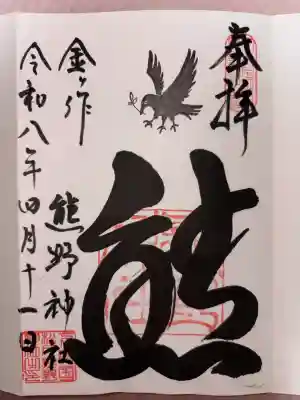 奉拝
熊
金ヶ作
熊野神社
令和八年四月十一日